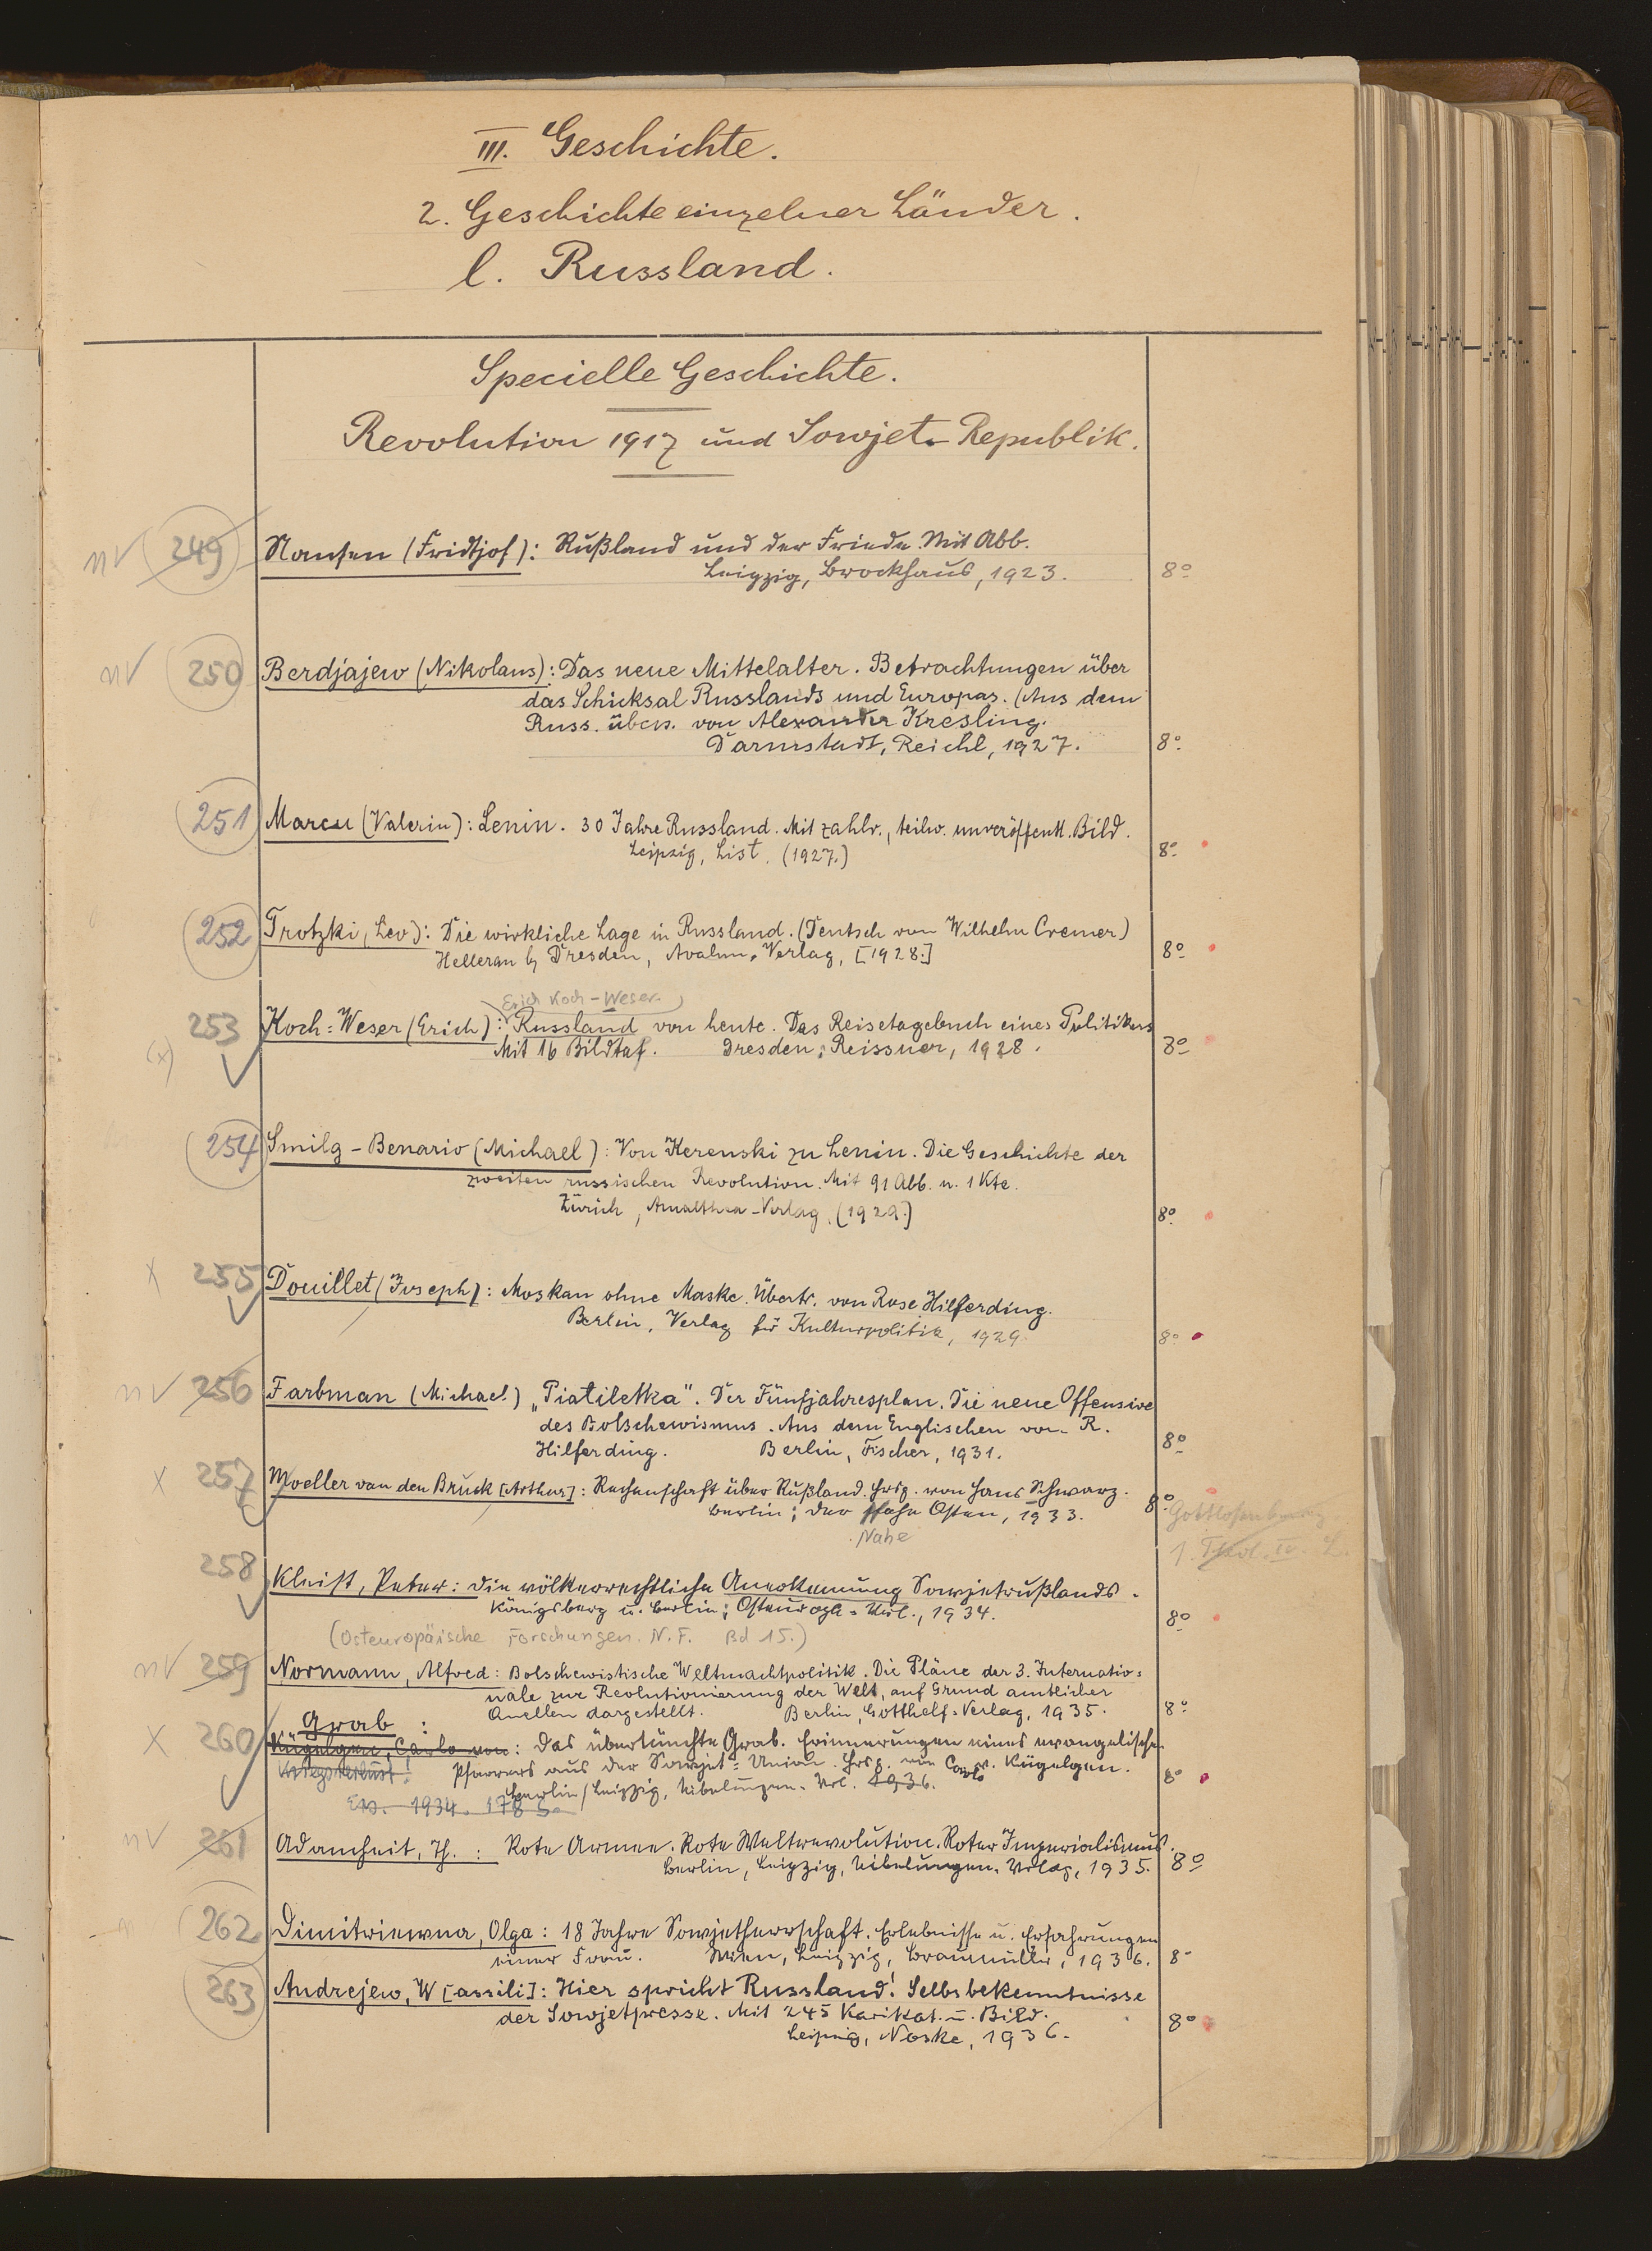 III. Geschichte.
2. Geschichte einzelner Länder.
l. Russland.
Specielle Geschichte.
Revolution 1917 und Sowjet-Republik.
nv 249 Nansen (Fridtjof): Rußland und der Friede. Mit Abb.
Leipzig, Brockhaus, 1923. 8°
nv 250 Berdjajew (Nikolaus): Das neue Mittelalter. Betrachtungen über
das Schicksal Russlands und Europas. (Aus dem
Russ. übers. von Alexander Kresling.
Darmstadt, Reichl, 1927. 8°
251 Marcu (Valeriu): Lenin. 30 Jahre Russland. Mit zahlr., teilw. unveröffentl. Bild.
Leipzig, List, (1927.) 8°
252 Trotzki, Leo): Die wirkliche Lage in Russland. (Deutsch von Wilhelm Cremer)
Hellerau b/ Dresden, Avalun-Verlag, [1928.] 8°
Erich Koch-Weser
253 Koch-Weser (Erich): Russland von heute. Das Reisetagebuch eines Politikers
(x) Mit 16 Bildtaf. Dresden, Reissner, 1928. 8°
254 Smilg-Benario (Michael): Von Kerenski zu Lenin. Die Geschichte der
zweiten russischen Revolution. Mit 91 Abb. u. 1 Kte.
Zürich, Amalthea-Verlag, (1929.) 8°
x 255 Douillet (Joseph): Moskau ohne Maske. Übertr. von Rose Hilferding.
Berlin, Verlag für Kulturpolitik, 1929. 8°
nv 256 Farbman (Michael) „Piatiletka". Der Fünfjahresplan. Die neue Offensive
des Bolschewismus. Aus dem Englischen von R.
Hilferding. Berlin, Fischer, 1931. 8°
x 257 Moeller van den Bruck [Arthur]: Rechenschaft über Rußland. Hrsg. von Hans Schwarz.
Berlin: Der Nahe Osten, 1933. 8°
Nahe
258 Kleist, Peter: Die völkerrechtliche Anerkennung Sowjetrußlands.
Königsberg u. Berlin: Osteuropa-Verl., 1934. 8°
(Osteuropäische Forschungen. N.F. Bd 15.)
nv 259 Normann, Alfred: Bolschewistische Weltmachtpolitik. Die Pläne der 3. Internatio-
nale zur Revolutionierung der Welt, auf Grund amtlicher
Quellen dargestellt. Berlin, Gotthelf-Verlag, 1935. 8°
Grab :
x 260 Kügelgen, Carlo von: Das übertünchte Grab. Erinnerungen eines evangelischen
Kriegsverlust! Pfarrers aus der Sowjet-Union. Hrsg. von Carlo v. Kügelgen.
Berlin/Leipzig, Nibelungen-Verl. 1936. 8°
Erw. 1934. 178 S.
nv 261 Adamheit, Th.: Rote Armee. Rote Weltrevolution. Roter Imperialismus.
Berlin, Leipzig, Nibelungen-Verlag, 1935. 8°
262 Dimitriewna, Olga: 18 Jahre Sowjetherrschaft. Erlebnisse u. Erfahrungen
einer Frau. Wien, Leipzig, Braumüller, 1936. 8°
263 Andrejew, W[assili]: Hier spricht Russland! Selbsbekenntnisse
der Sowjetpresse. Mit 245 Karikat. u. Bild.
Leipzig, Noske, 1936. 8°